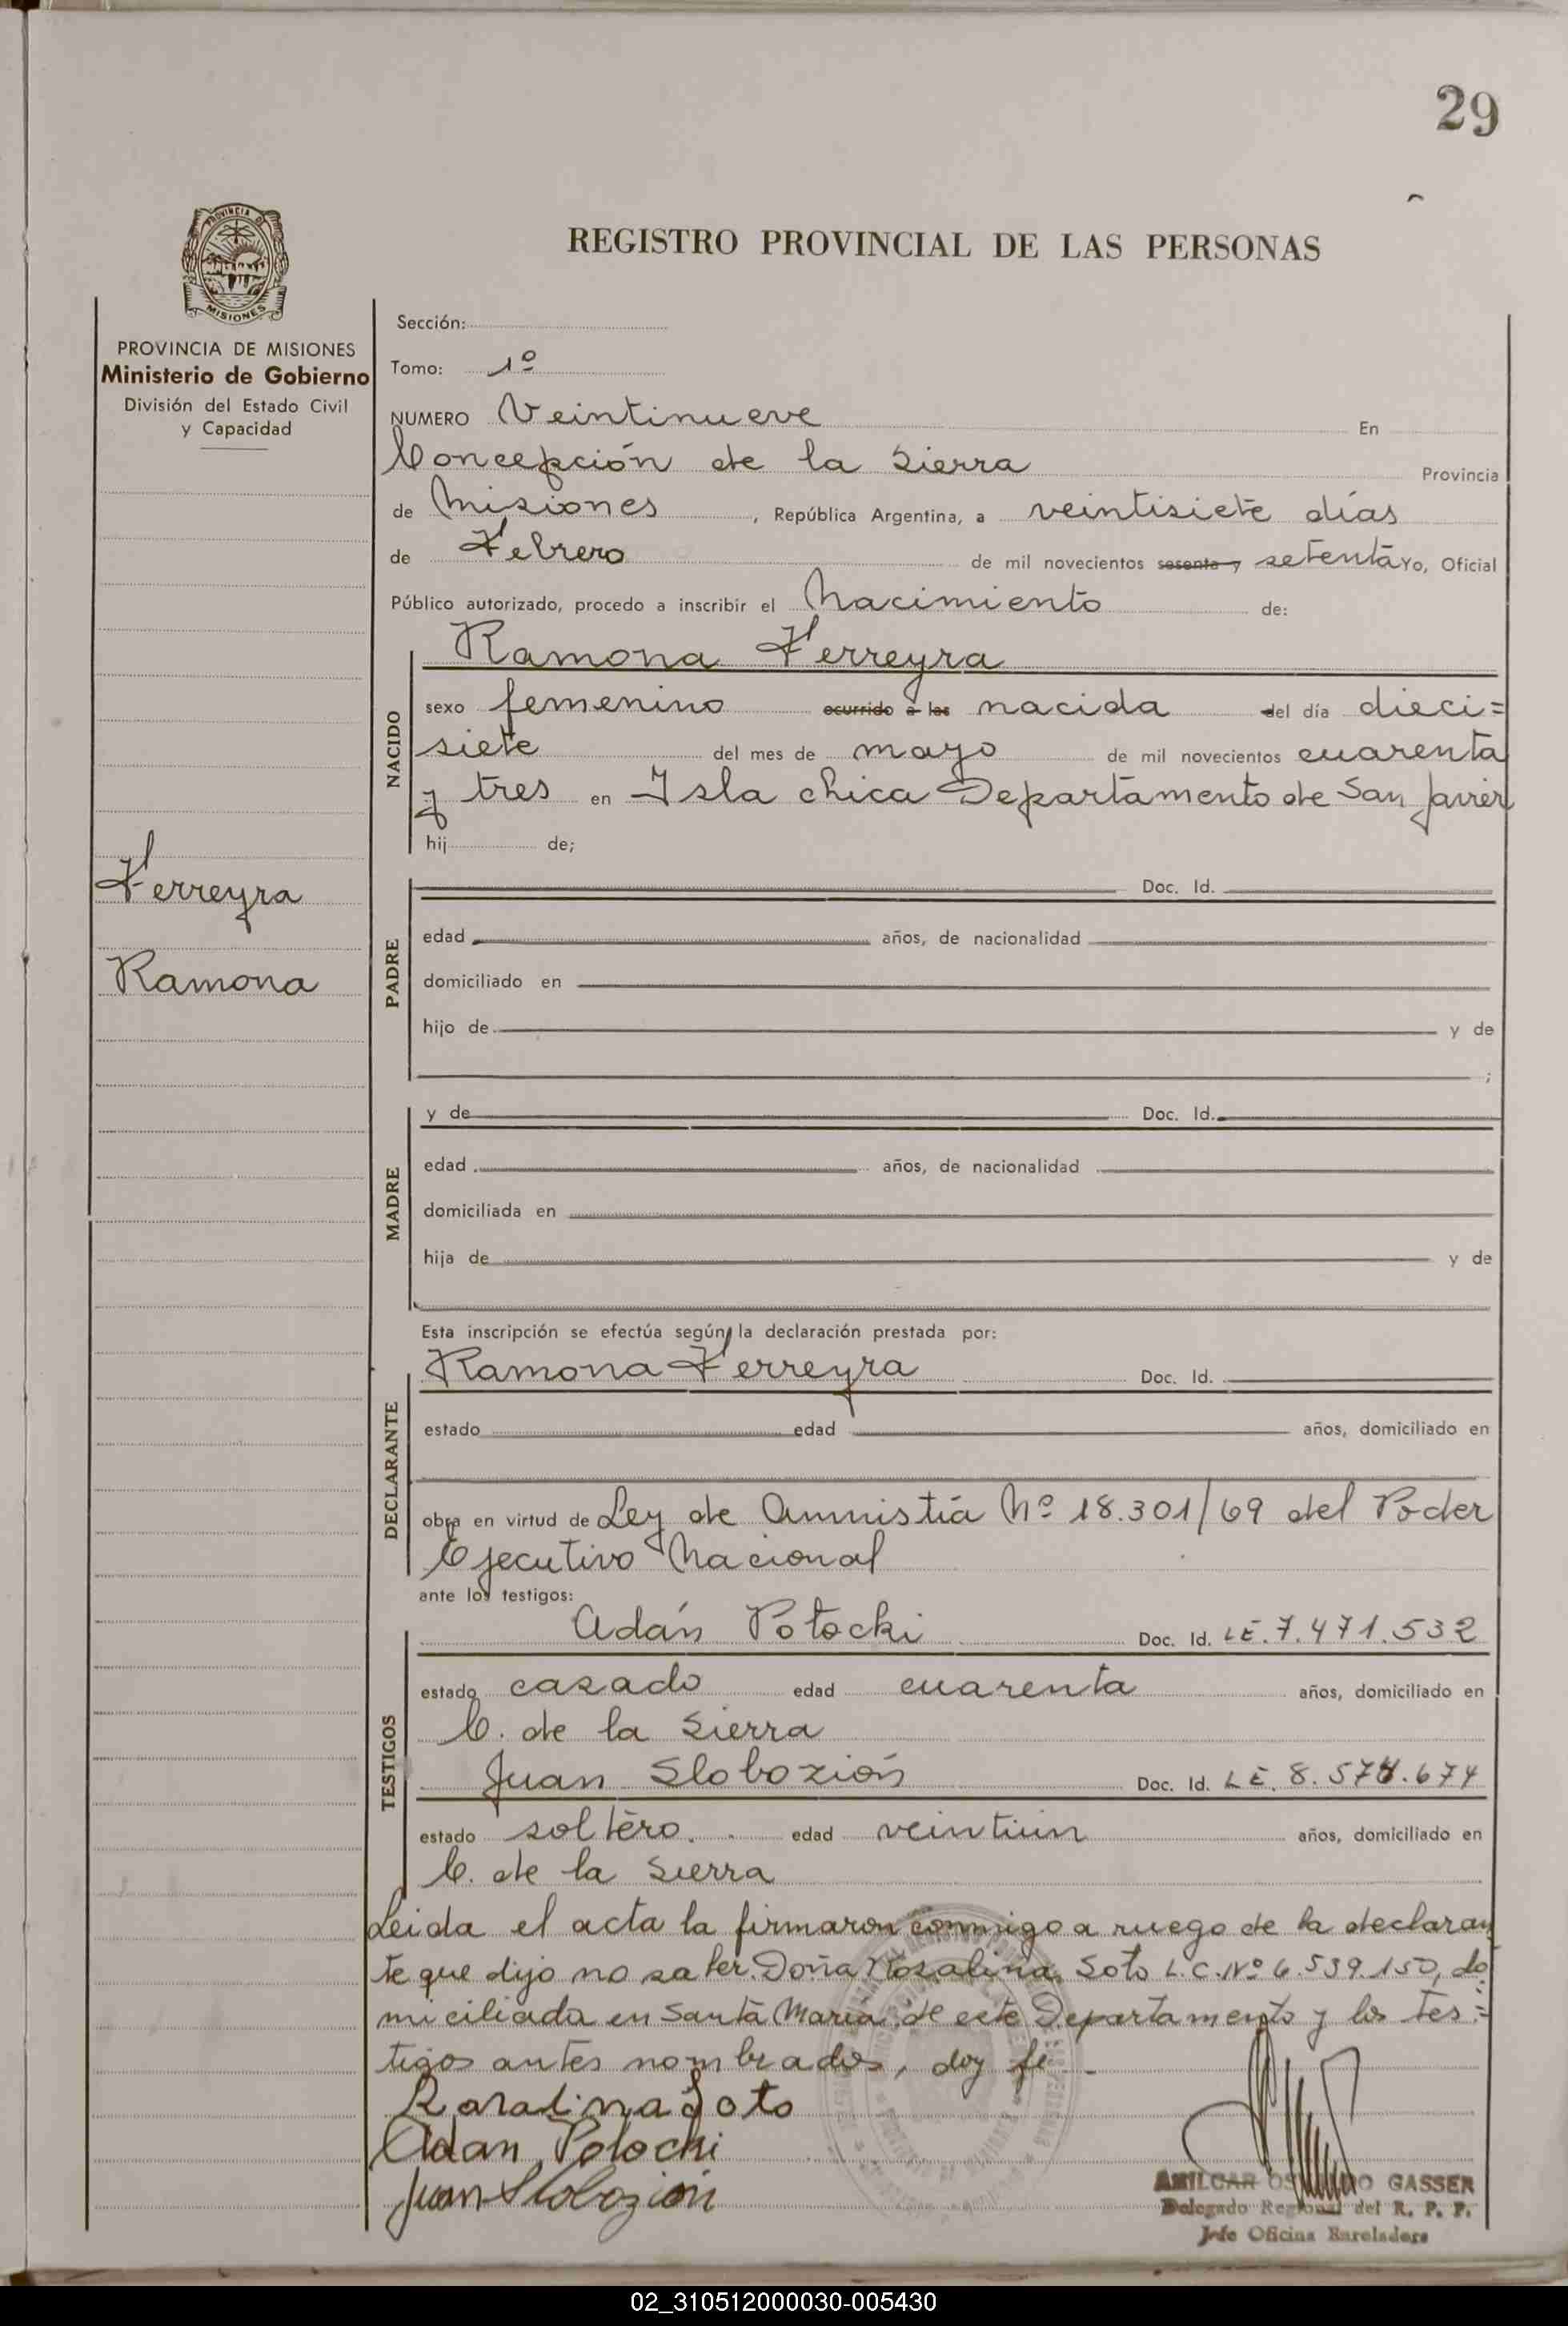 29
PROVINCIA DE
MISIONES
REGISTRO PROVINCIAL DE LAS PERSONAS
PROVINCIA DE MISIONES
Ministerio de Gobierno
División del Estado Civil
y Capacidad
Ferreyra
Ramona
Sección:
Tomo: 1º
NUMERO Veintinueve En
Concepción de la Sierra Provincia
de Misiones, República Argentina, a veintisiete días
de Febrero de mil novecientos sesenta y setenta Yo, Oficial
Público autorizado, procedo a inscribir el Nacimiento de:
Ramona Ferreyra
NACIDO
sexo femenino ocurrido a las nacida del día dieci=
siete del mes de mayo de mil novecientos cuarenta
y tres en Isla chica Departamento de San Javier
hij de;
PADRE
Doc. Id.
edad años, de nacionalidad
domiciliado en
hijo de y de
;
MADRE
y de Doc. Id.
edad años, de nacionalidad
domiciliada en
hija de y de
Esta inscripción se efectúa según la declaración prestada por:
DECLARANTE
Ramona Ferreyra Doc. Id.
estado edad años, domiciliado en
obra en virtud de Ley de Amnistía Nº 18.301/69 del Poder
Ejecutivo Nacional
ante los testigos:
TESTIGOS
Adán Potocki Doc. Id. LE. 7.471.532
estado casado edad cuarenta años, domiciliado en
C. de la Sierra
Juan Slobozión Doc. Id. LE. 8.574.674
estado soltero. edad veintiún años, domiciliado en
C. de la Sierra
Leida el acta la firmaron conmigo a ruego de la declaran
te que dijo no saber. Doña Rosalina Soto L.C. Nº 6.539.150, do
miciliada en Santa María de este Departamento y los tes=
tigos antes nombrados, doy fé -
Rosalina Soto
Adan Potocki
Juan Slobozión
AMILCAR GASSER
Delegado Regional del R. P. P.
Jefe Oficina
02_310512000030-005430